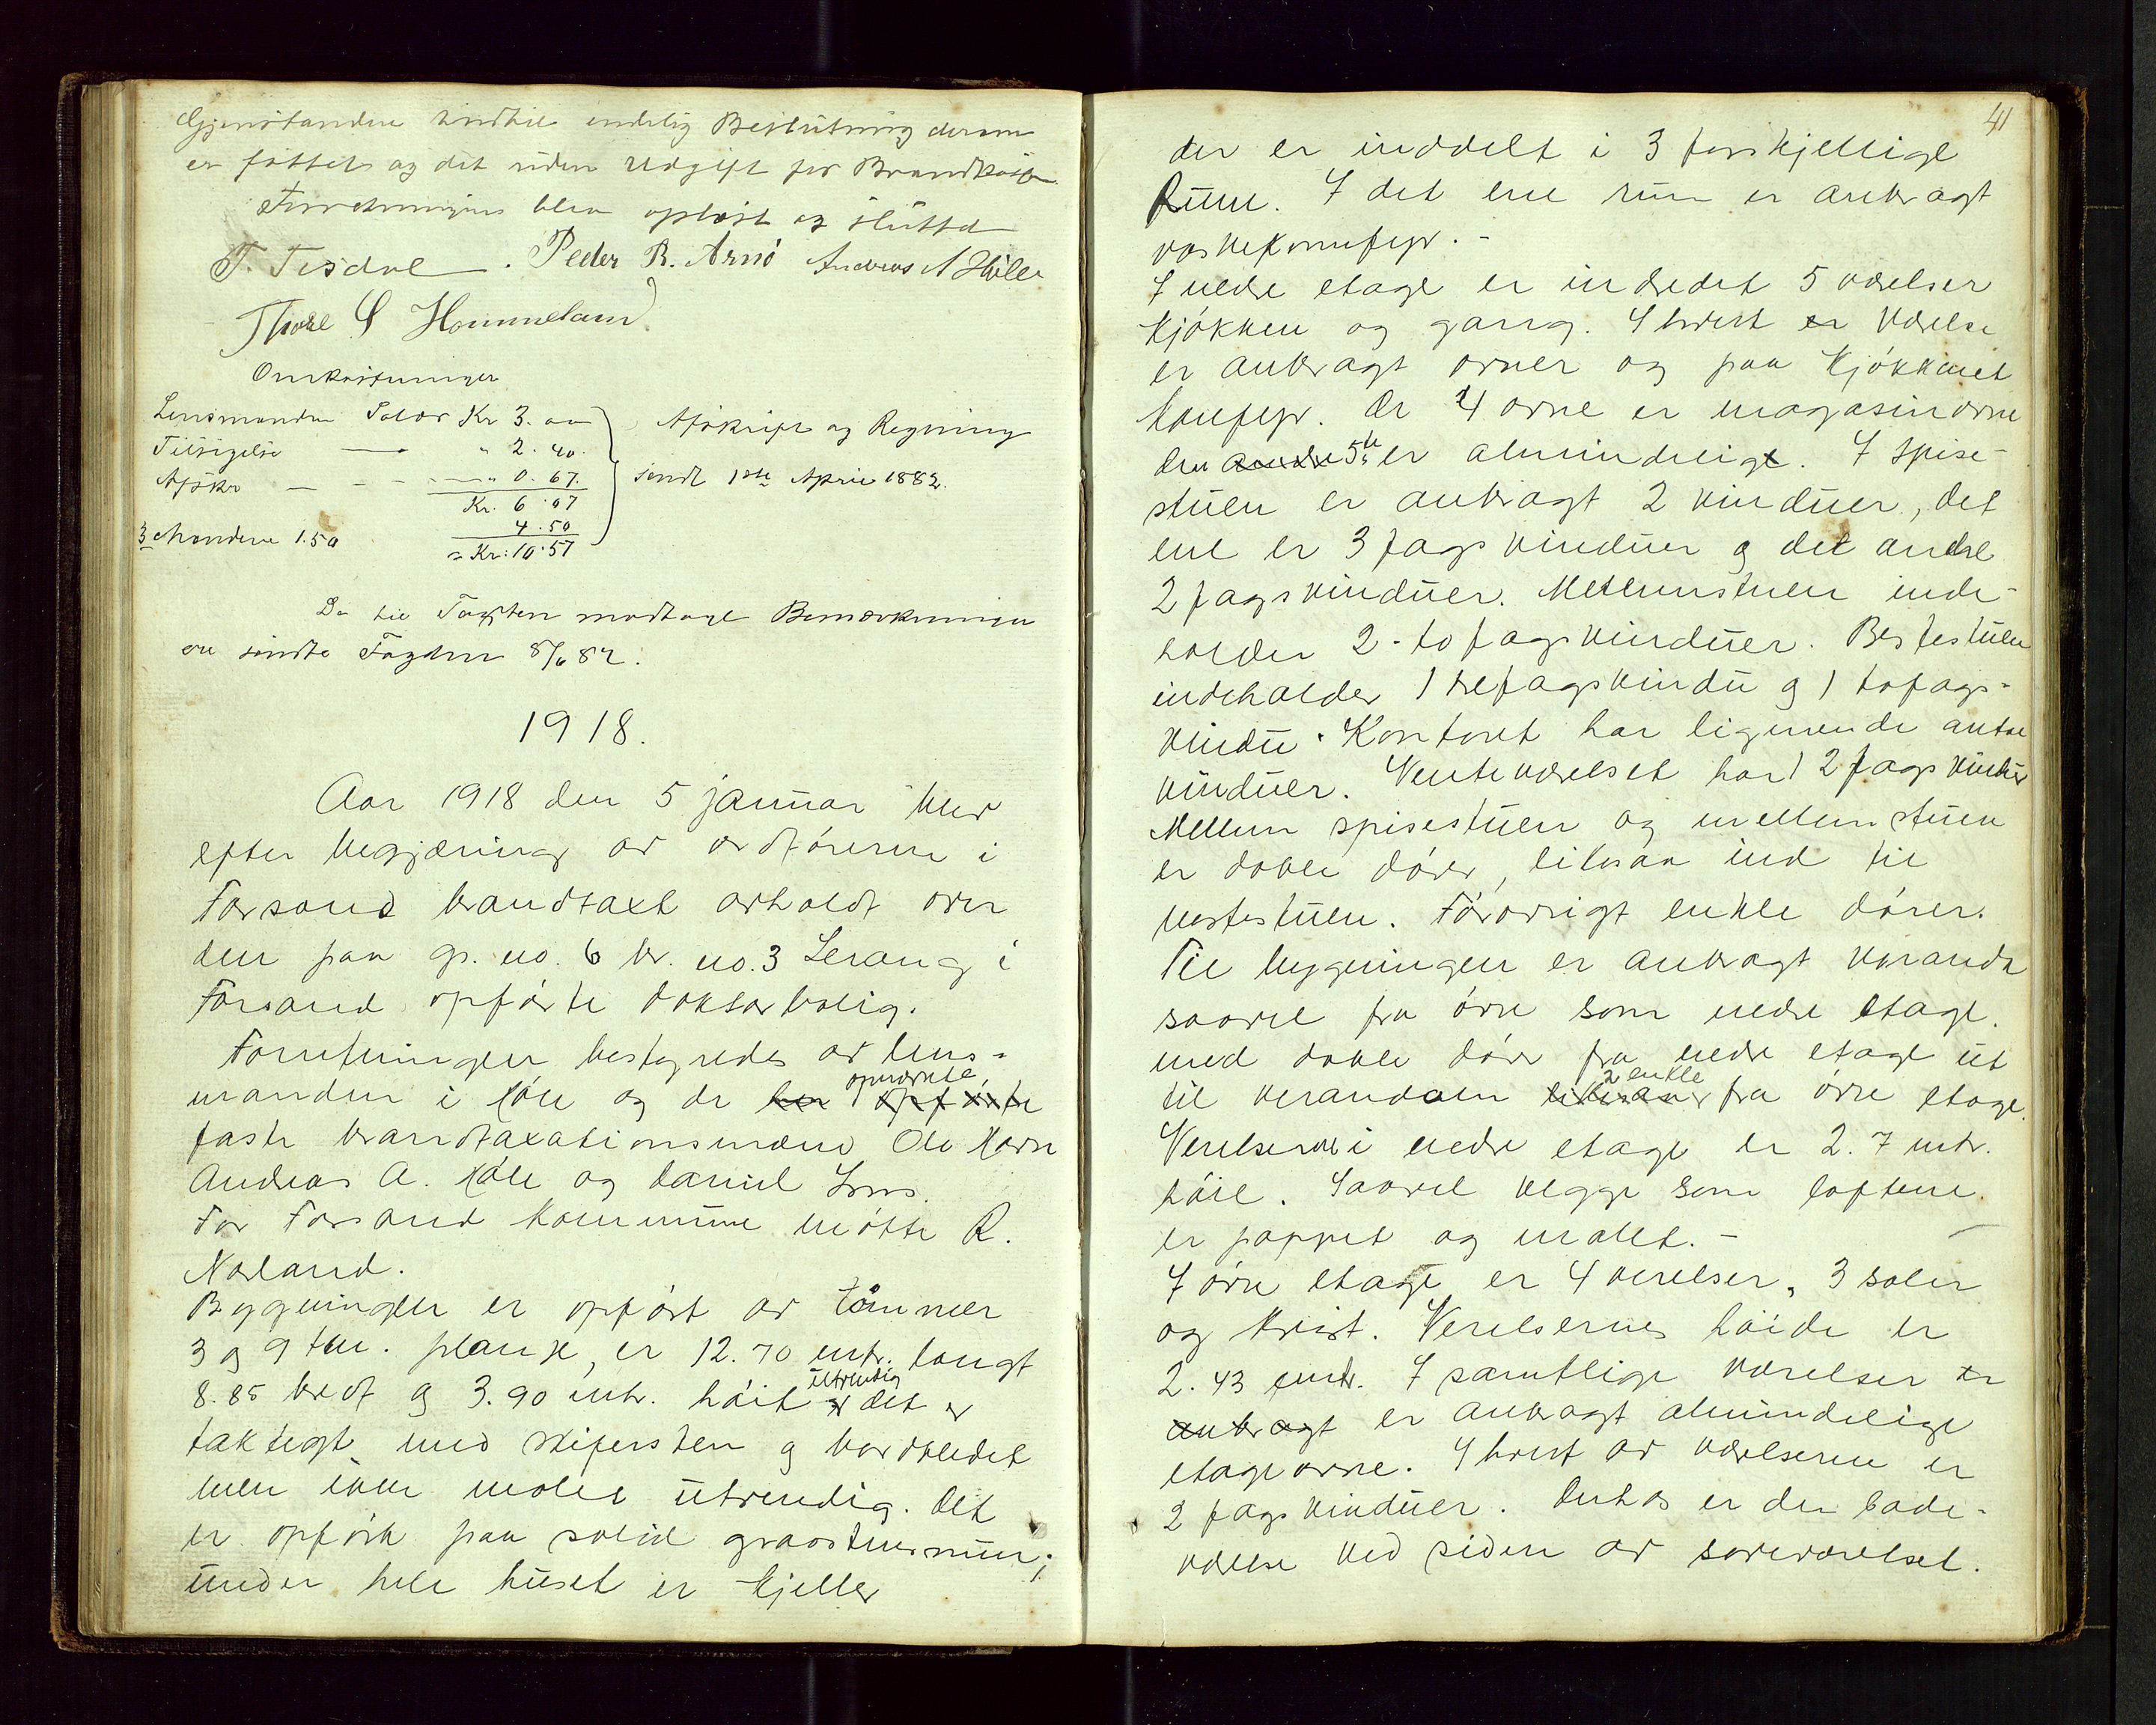 Gjenstandene indtil endelig Beslutning derom
er fattet og det uden Udgift for Brandkassen.
Forretningen blev oplæst og sluttet
T. Tisdal. Peder R. Arnö Andreas A Hölle
Thore S Hommeland
Omkostninger
Lensmanden Salær Kr 3. 00
Tilsigelse — " 2. 40.
Afskr — - - " 0. 67.
Kr. 6.07
3 Mændene 1.50 4.50
= Kr: 10.57
Afskrift og Regning
sendt 1ste April 1882.
De til Taxten modtagne Bemærkninger
er sendte Fogden 8/6 82.
1918.
Aar 1918 den 5 januar blev
efter begjæring av ordføreren i
Forsand brandtakst avholdt over
den paa gr. no. 6 br. no. 3 Lerang i
Forsand opførte doktorbolig.
Forretningen bestyredes av lens-
manden i Høle og de her opførte opnævnte
faste brandtaxationsmænd Ole
Andreas A. Høle og Daniel
For Forsand kommune møtte R.
Norland.
Bygningen er opført av tömmer
3 og 9 tm. planke, er 12.70 mtr. langt
8.85 bredt og 3.90 mtr. höit utvendig er det er
taktegt med skifersten og bordkledet
men ikke malet utvendig. Det
er opført paa solid graastensmur;
under hele huset er kjeller
41
der er inddelt i 3 forskjellige
Rum. I det ene rum er anbragt
vaskekomfyr. -
I nedre etage er indredet 5 værelser
kjökken og gang. I hvert er Værelse
er anbragt ovner og paa kjökkenet
komfyr. De 4 ovne er magasinovne
den andre 5te er almindelige. I Spise-
stuen er anbragt 2 vinduer, det
ene er 3 fags vinduer og det andre
2 fags vinduer. Mellemstuen inde-
holder 2- to fags vinduer. Bestestuen
indeholder 1 trefagsvindu og 1 tofags-
vindu. Kontoret har lignende antal
vinduer. Venteværelset har 1 2 fags vindu
Mellem spisestuen og mellemstuen
er doble dörer, likesaa ind til
bestestuen. Forövrigt enkle dörer.
Til bygningen er anbragt veranda
saavel fra övre som nedre etage.
med doble dör fra nedre etage ut
til verandaen likesaa 2 enkle fra övre etage.
Verelserne i nedre etage er 2.7 mtr.
höie. Saavel vegge som loftene
er pappet og malet. -
I övre etage er 4 verelser, 3 saler
og kvist. Verelsernes höide er
2.43 mtr. I samtlige værelser er
anbragt er anbragt almindelige
etageovne. I hvert av værelserne er
2 fags vinduer. Derhos er der bade-
værelse ved siden av soveværelset.